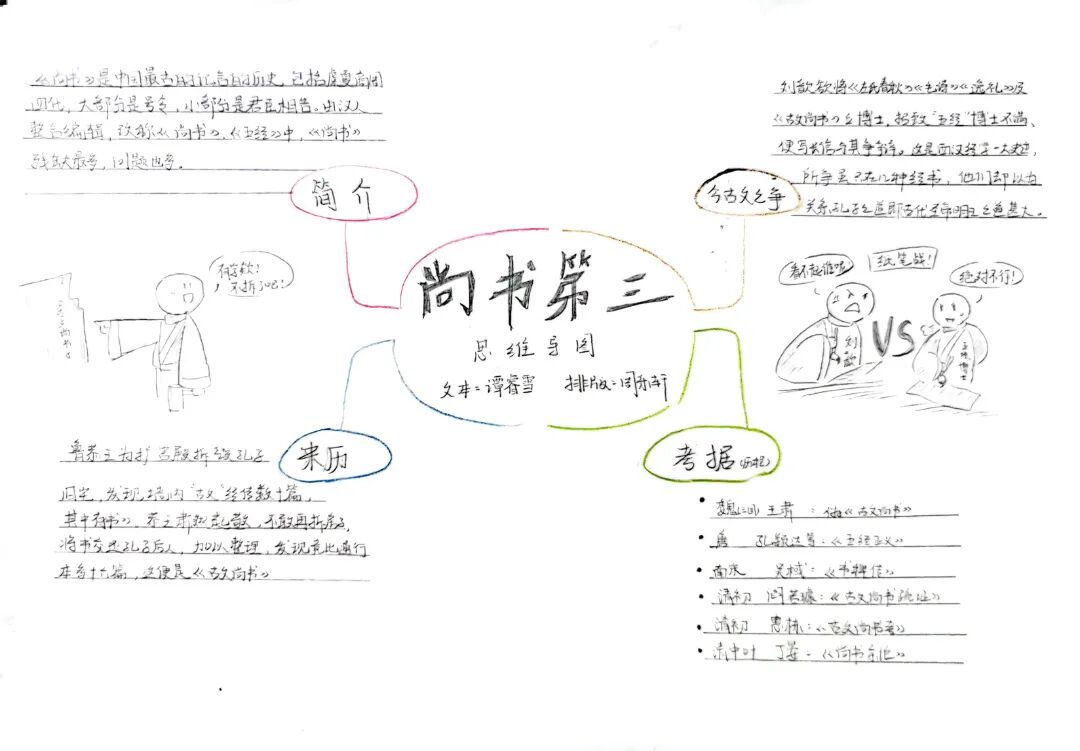 尚书第三
思维导图
文本：谭睿雪 排版：
简介
《尚书》是中国最古的记言的历史，包括虞夏商周
四代，大部分是号令，小部分是君臣相告。由汉人
整合编辑，改称《尚书》，《五经》中，《尚书》
残缺最多，问题也多。
今古文之争
刘歆欲将《左氏春秋》《毛诗》《逸礼》及
《古文尚书》立博士，招致“五经”博士不满、
便写长信与其争辩。这是西汉经学一大史迹，
所争虽只在几种经书，他们却以为
关系孔子之道即古代圣帝明王之道甚大。
有鼓歌！
不拆了吧！
古文尚书
看不起谁呢
纸笔战！
绝对不行！
刘歆
VS
五经博士
来历
鲁恭王为扩宫殿拆毁孔子
旧宅，发现墙内“古文”经传数十篇，
其中有书》。恭王肃然起敬，不敢再拆房子，
将书交还孔子后人，加以整理，发现竟比通行
本多十六篇，这便是《古文尚书》
考据（历程）
• 魏 王肃：伪作《古文尚书》
• 唐 孔颖达等：《五经正义》
• 南宋 吴棫：《书稗传》
• 清初 阎若璩：《古文尚书疏证》
• 清初 惠栋：《古文尚书考》
• 清中叶 丁晏：《尚书余论》